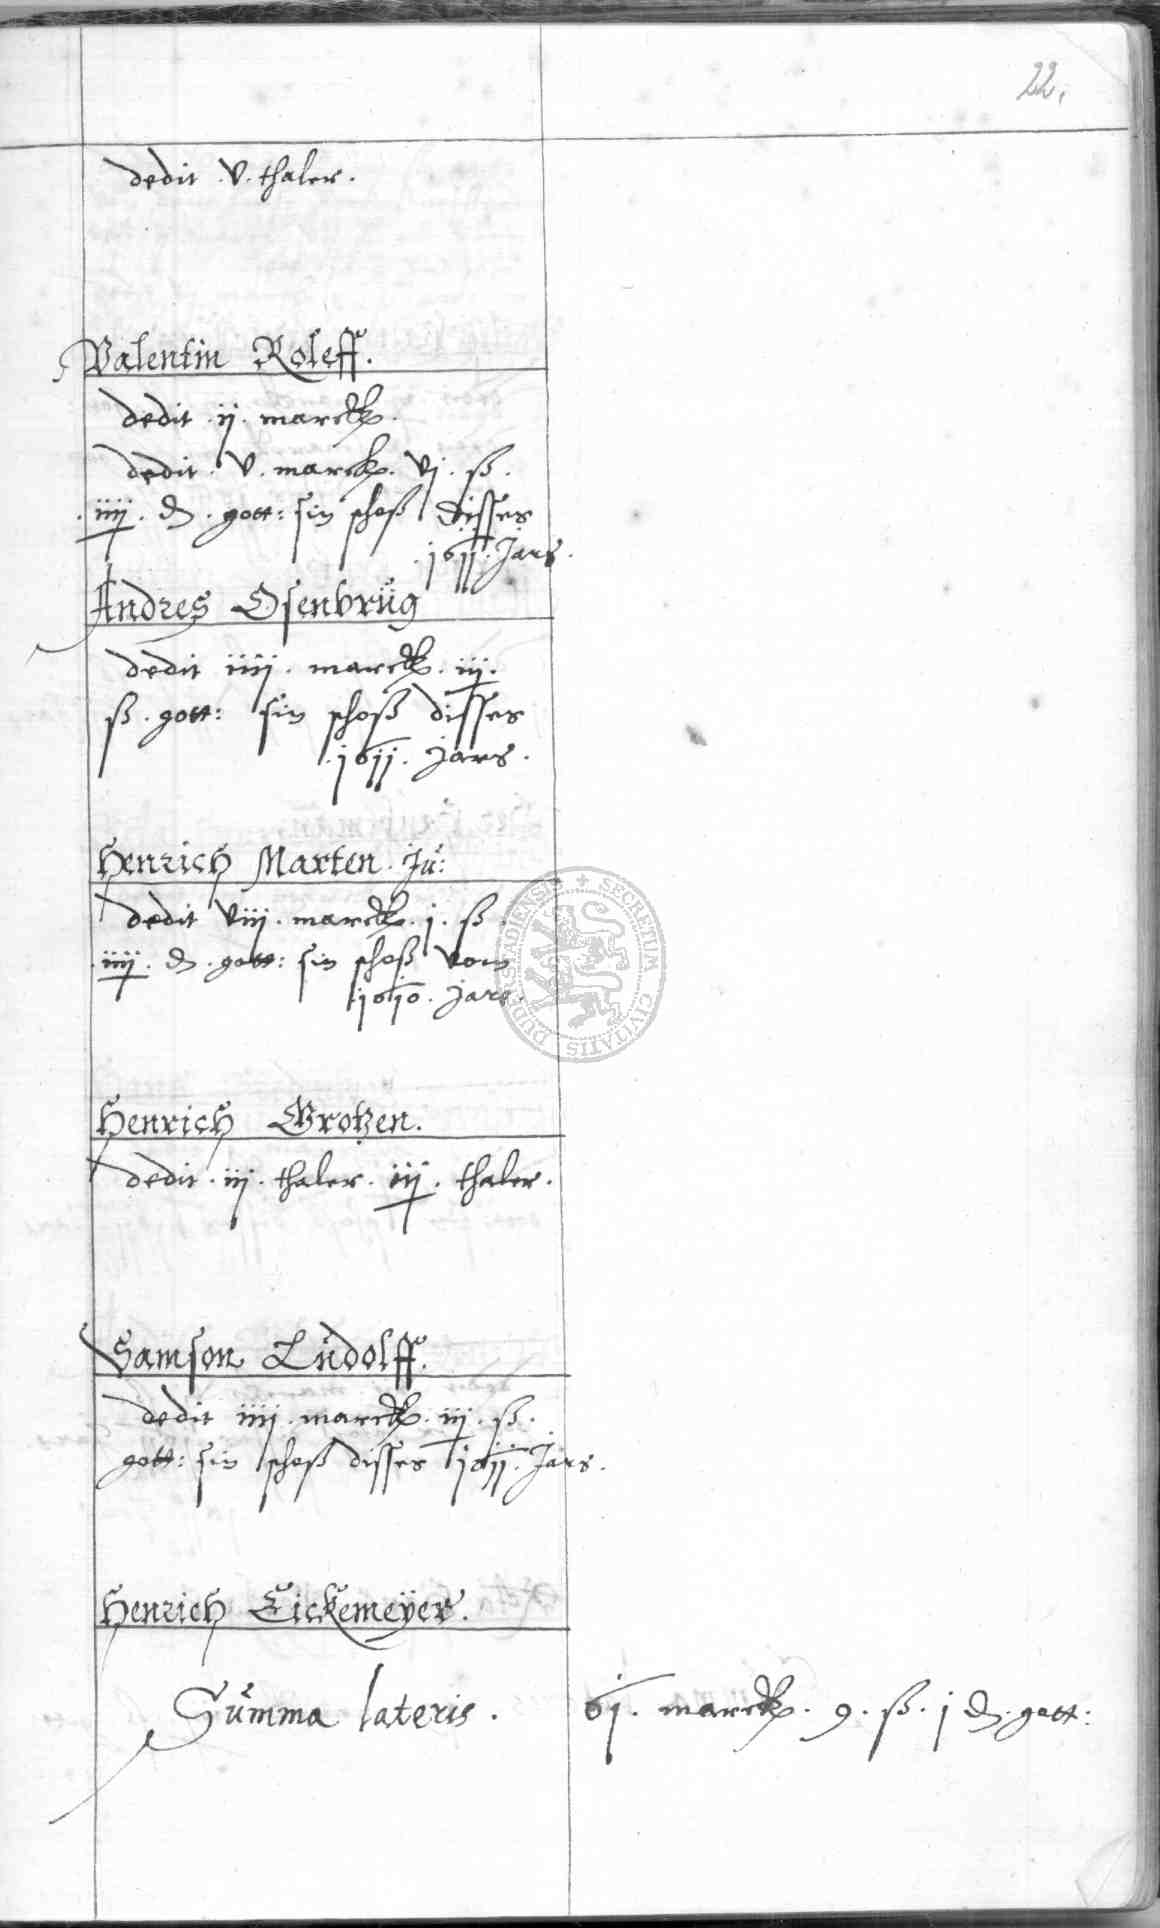 22.
dedit .v. thaler.
Valentin Roleff.
dedit .ij. marck.
dedit. v. marck. vj. ß.
.iiij. ₰. gott: sin schoß disses
.1611. Jars.
Andres Osenbrüg
dedit iiij. marck. iij.
ß. gott: sin schoß disses
.1611. Jars.
Henrich Marten. Ju:
dedit viij. marck. j. ß.
.iiij. ₰. gott: sin schoß vom
1610. Jare.
Henrich Grotzen.
dedit. iij. thaler. iij. thaler.
Samson Ludolff.
dedit iiij. marck. iij. ß.
gott: sin schoß disses 1611. Jars.
Henrich Eickemeÿer.
Summa lateris. 61. marck. 9. ß. j ₰. gott:
SECRETUM CIVITATIS DUDERSTADIENSIS